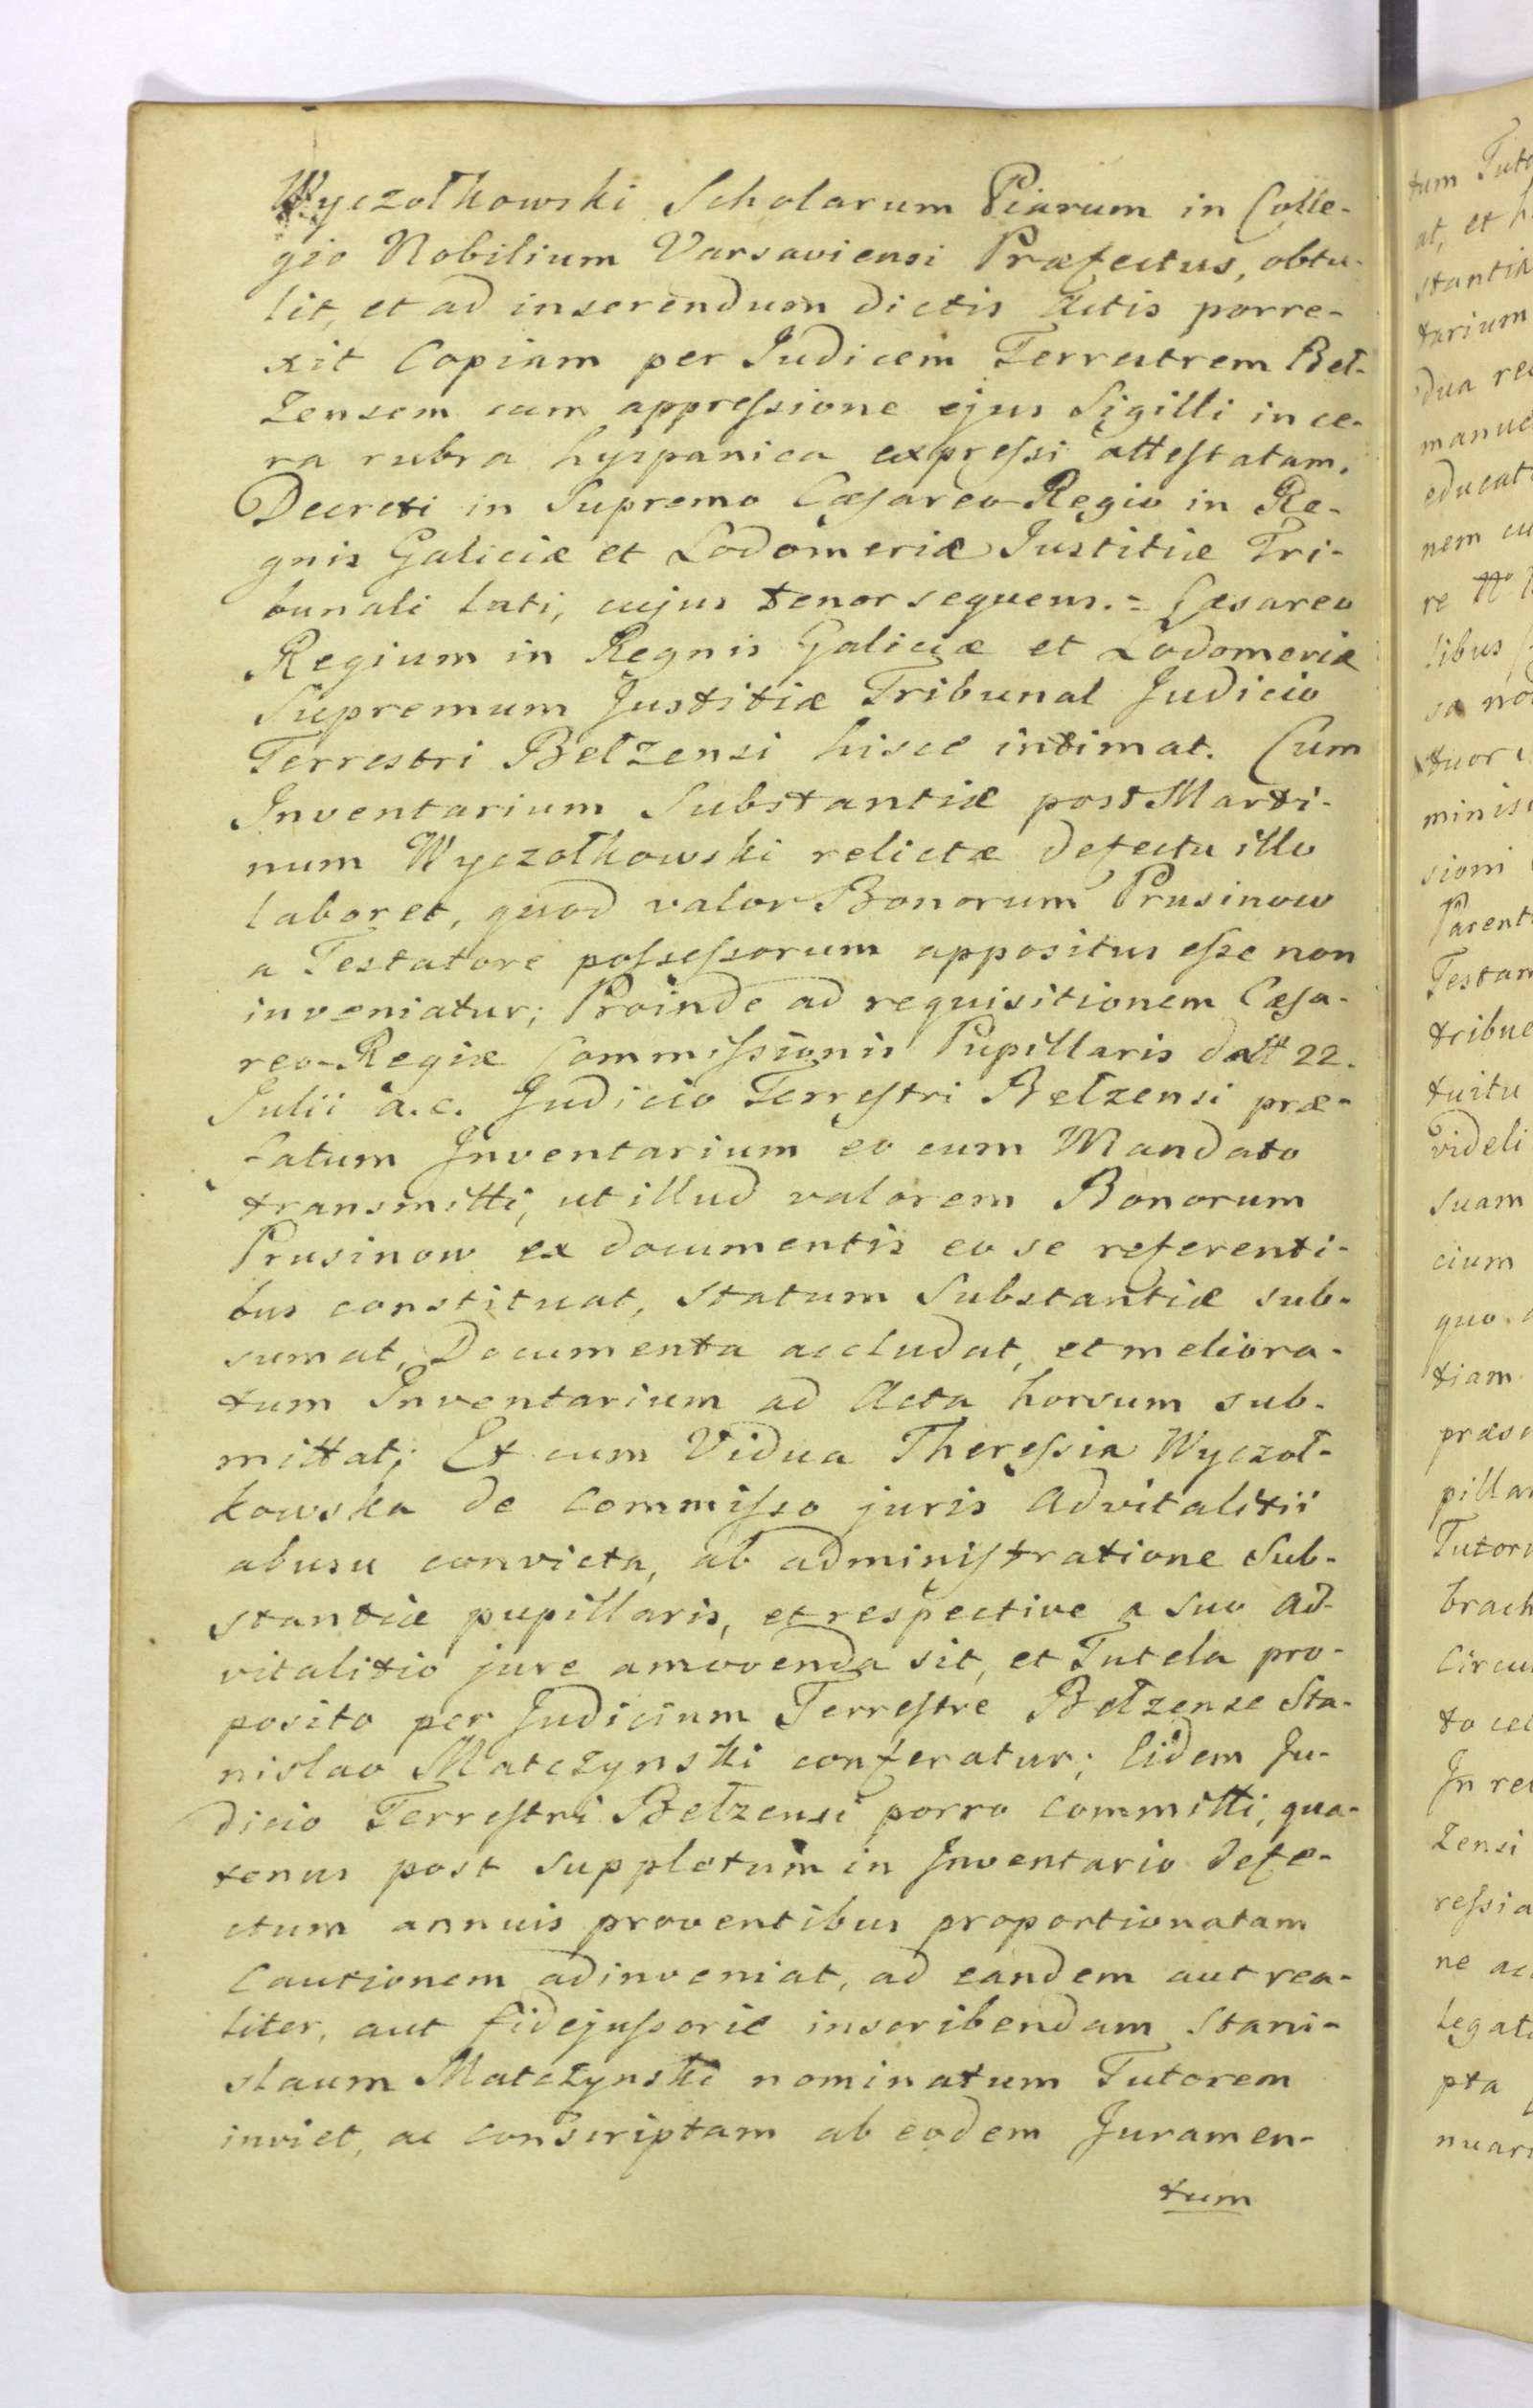 Wyczołkowski Scholarum Piarum in Colle-
gio Nobilium Varsaviensi Præfectus, obtu-
lit, et ad inserendum dictis Actis porre-
xit Copiam per Judicem Terrestrem Beł-
Zensem cum appreſsione ejus Sigilli in ce-
ra rubra hyspanica expreſsi atteſtatam,
Decreti in Supremo Cæſareo-Regio in Re-
gnis Galiciæ et Lodomeriæ Justitiæ Tri-
bunali lati, cujus tenor sequens. = Cæsareo
Regium in Regnis Galiciæ et Lodomeriæ
Supremum Justitiæ Tribunal Judicio
Terrestri Bełzensi hisce intimat. Cum
Inventarium Substantiæ post Marti-
num Wyczołkowski relictæ defectu illo
laboret, quod valor Bonorum Prusinow
a Testatore poſseſsorum appositus eſse non
inveniatur; Proinde ad requisitionem Cæſa-
reo-Regiæ Commiſsionis Pupillaris datt 22.
Julii a.c. Judicio Terreſtri Bełzensi præ-
fatum Inventarium eo cum Mandato
transmitti, ut illud valorem Bonorum
Prusinow ex documentis eo se referenti-
bus constituat, statum Substantiæ sub-
sumat, Documenta accludat, et meliora-
tum Inventarium ad Acta horsum sub-
mittat; Et cum Vidua Thereſsia Wyczoł-
kowska de Commiſso juris Advitalitii
abusu convicta, ab adminiſtratione Sub-
stantiæ pupillaris, et respective a suo Ad-
vitalitio jure amovenda sit, et Tutela pro-
posito per Judicium Terreſtre Bełzense Sta-
nislao Matczynski conferatur; Eidem Ju-
dicio Terreſtri Bełzensi porro committi, qua-
tenus post suppletum in Inventario defe-
ctum annuis proventibus proportionatam
Cautionem adinveniat, ad eandem aut rea-
liter, aut fidejuſsorie inscribendam Stani-
slaum Matczynski nominatum Tutorem
inviet, ac conscriptam ab eodem Juramen-
tum
tum Tuto
at, et h
stantia
tarium
dua re
manu
educat
nem cu
re
libus
sa no
tuor
minis
sioni
Parent
Testam
tribue
tuitu
videli
suam
cium
quo
tiam
præs
pillar
Tutor
brach
Circu
to ce
In re
Zensi
reſsia
ne ac
legat
pta
nuar